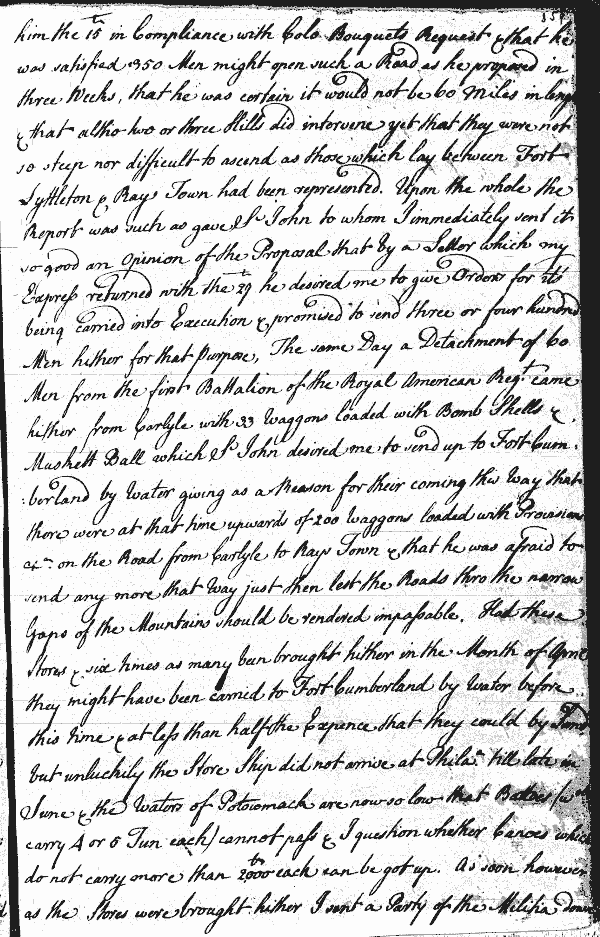 him the 15th in Compliance with Colo Bouquets Request & that he
was satisfied 350 Men might open such a Road as he proposed in
three Weeks, that he was certain it would not be 60 Miles in leng
& that altho two or three Hills did intervene yet that they were not
so steep nor difficult to ascend as those which lay between Fort
Lyttleton & Rays Town had been represented. Upon the whole the
Report was such as gave Sr John to whom I immediately sent it
so good an Opinion of the Proposal that by a Letter which my
Express returned with the 29th he desired me to give Orders for its
being carried into Execution & promised to send three or four hundred
Men hither for that Purpose, The same Day a Detachment of 60
Men from the first Battalion of the Royal American Regt came
hither from Carlyle with 33 Waggons loaded with Bomb Shells &
Muskett Ball which Sr John desired me to send up to Fort Cum-
:berland by Water giving as a Reason for their coming this Way that
there were at that time upwards of 200 Waggons loaded with Provisions
&ca on the Road from Carlyle to Rays Town & that he was afraid to
send any more that Way just then lest the Roads thro the narrow
Gaps of the Mountains should be rendered impassable. Had these
Stores & six times as many been brought hither in the Month of April
they might have been carried to Fort Cumberland by Water before
this time & at less than half the Expence that they could by Land
but unluckily the Store Ship did not arrive at Phila. till late in
June & the Waters of Potowmack are now so low that Battoes (wch
carry 4 or 5 Tun each) cannot pass & I question whether Canoes which
do not carry more than 2000 th each can be got up. As soon however
as the Stores were brought hither I sent a Party of the Militia down